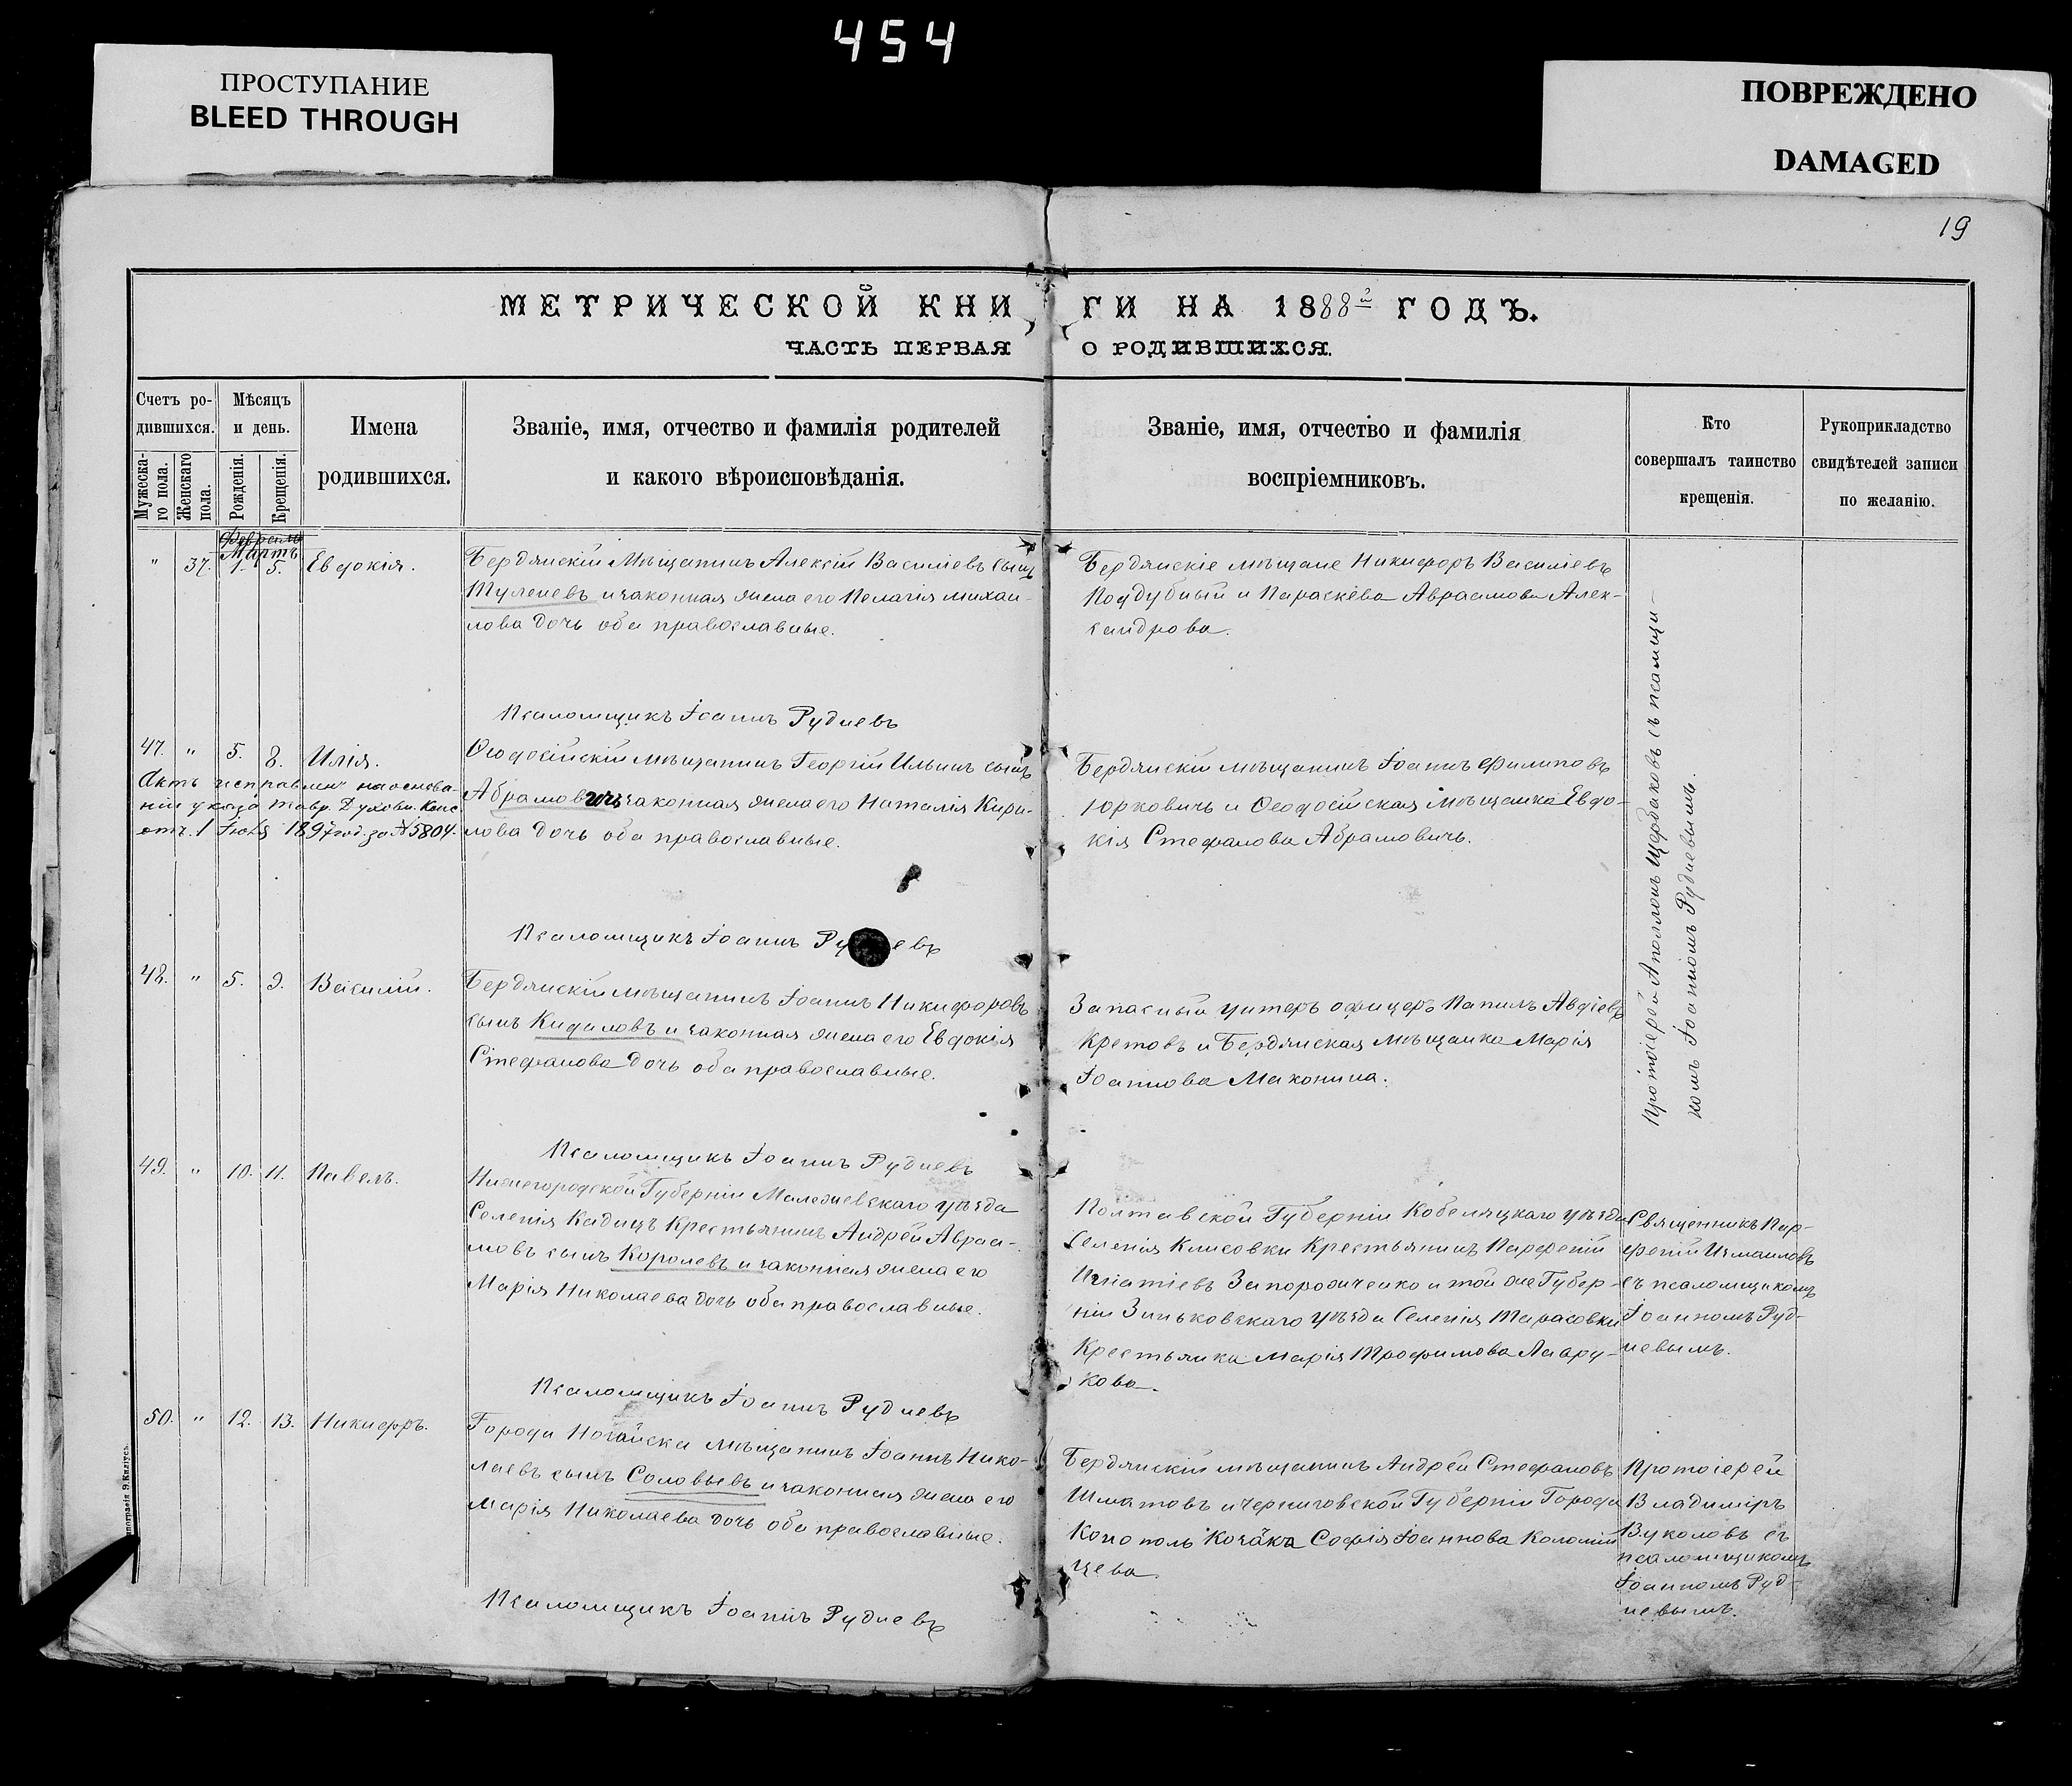 454
ПРОСТУПАНИЕ
BLEED THROUGH
ПОВРЕЖДЕНО
DAMAGED
19
МЕТРИЧЕСКОЙ КНИГИ НА 1888й ГОДЪ.
ЧАСТЬ ПЕРВАЯ О РОДИВШИХСЯ.
Счетъ ро-
дившихся.
Мужеска-
го пола.
Женскаго
пола.
Мѣсяцъ
и день.
Рожденія.
Крещенія.
Имена
родившихся.
Званіе, имя, отчество и фамилія родителей
и какого вѣроисповѣданія.
Званіе, имя, отчество и фамилія
воспріемниковъ.
Кто
совершалъ таинство
крещенія.
Рукоприкладство
свидѣтелей записи
по желанію.
Февраль
Мартъ
" 37. 1. 5. Евдокія.
Бердянскій Мѣщанинъ Алексій Василіевъ сынъ
Туленевъ и законная жена его Пелагія Михаи-
лова дочь оба православные.
Бердянскіе мѣщане Никифоръ Василіевъ
Поддубный и Параскева Авраамова Алек-
сандрова.
Псаломщикъ Іоаннъ Рудневъ
47. " 5. 8. Илія.
Актъ исправленъ на основа-
ніи указа Тавр. Духовн. Конс.
отъ 1 Іюля 1897 год. за № 5804.
Ѳеодосійскій мѣщанинъ Георгій Ильинъ сынъ
Абрамовичъ и законная жена его Наталія Кири-
лова дочь оба православные.
Бердянскій мѣщанинъ Іоаннъ Филиповъ
Юрковичъ и Ѳеодосійская Мѣщанка Евдо-
кія Стефанова Абрамовичъ.
Протоіерей Аполлонъ Щербаковъ съ псаломщи-
комъ Іоанномъ Рудневымъ.
Псаломщикъ Іоаннъ Рудневъ
48. " 5. 9. Василій.
Бердянскій мѣщанинъ Іоаннъ Никифоровъ
сынъ Кидаловъ и законная жена его Евдокія
Стефанова дочь оба православные.
Запасный унтеръ офицеръ Авдіевъ
Кретовъ и Бердянская мѣщанка Марія
Іоаннова Маконина.
Псаломщикъ Іоаннъ Рудневъ
49. " 10. 11. Павелъ.
Нижегородской Губерніи уѣзда
Селенія Кадицъ Крестьянинъ Андрей Авраа-
мовъ сынъ Королевъ и законная жена его
Марія Николаева дочь оба православные.
Полтавской Губерніи Кобеляцкаго уѣзда
Селенія Клисовки Крестьянинъ Парфеній
Игнатіевъ Запорожченко и той же Губер-
ніи Зиньковскаго уѣзда Селенія Тарасовки
Крестьянка Марія Трофимова Лавру-
кова.
Священникъ Пар-
феній Измаиловъ
съ псаломщикомъ
Іоанномъ Руд-
невымъ.
Псаломщикъ Іоаннъ Рудневъ
50. " 12. 13. Никифръ.
Города Ногайска мѣщанинъ Іоаннъ Нико-
лаевъ сынъ Соловьевъ и законная жена его
Марія Николаева дочь оба православные.
Бердянскій мѣщанинъ Андрей Стефановъ
Шматовъ и Черниговской Губерніи Города
Конополь Козачка Софія Іоаннова Коломій
цева.
Протоіерей
Владиміръ
Вуколовъ съ
псаломщикомъ
Іоанномъ Руд-
невымъ.
Псаломщикъ Іоаннъ Рудневъ